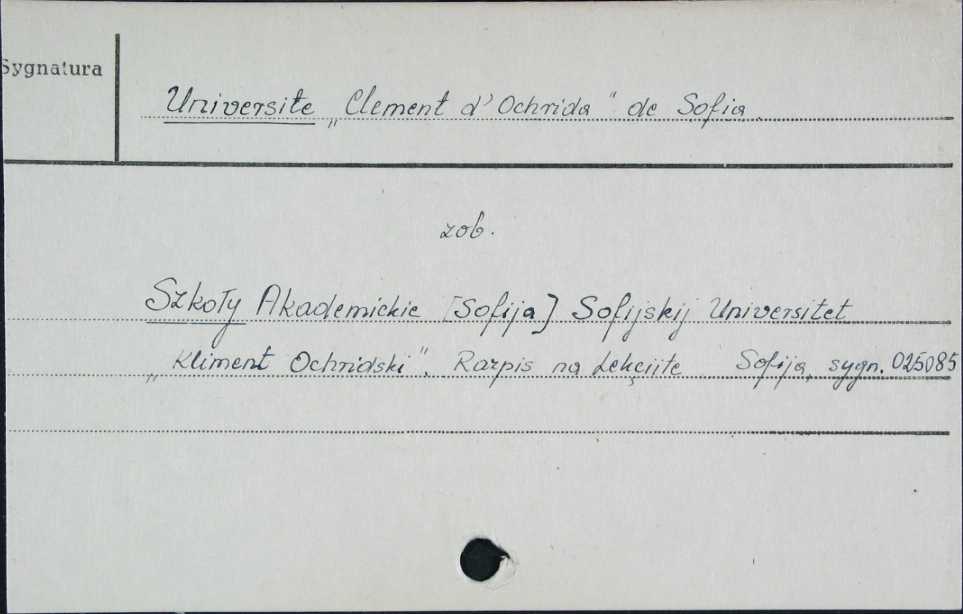 Sygnatura
Universite „Clement d'Ochrida" de Sofia
zob.
Szkoły Akademickie [Sofija] Sofijskij Universitet
„Kliment Ochridski". Razpis na Lekciite Sofija, sygn. 025085